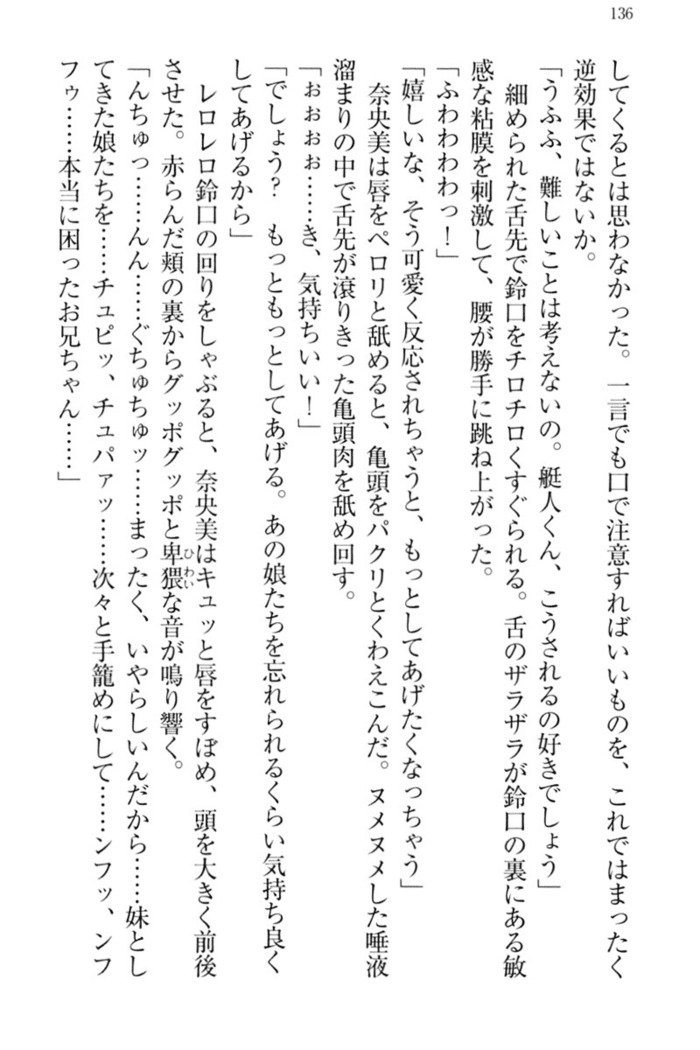 136
してくるとは思わなかった。一言でも口で注意すればいいものを、これではまったく
逆効果ではないか。
「うふふ、難しいことは考えないの。艇人くん、こうされるの好きでしょう」
細められた舌先で鈴口をチロチロくすぐられる。舌のザラザラが鈴口の裏にある敏
感な粘膜を刺激して、腰が勝手に跳ね上がった。
「ふわわわわっ！」
「嬉しいな、そう可愛く反応されちゃうと、もっとしてあげたくなっちゃう」
奈央美は唇をペロリと舐めると、亀頭をパクリとくわえこんだ。ヌメヌメした唾液
溜まりの中で舌先が滾りきった亀頭肉を舐め回す。
「ぉぉぉぉ……き、気持ちいい！」
「でしょう？　もっともっとしてあげる。あの娘たちを忘れられるくらい気持ち良く
してあげるから」
レロレロ鈴口の回りをしゃぶると、奈央美はキュッと唇をすぼめ、頭を大きく前後
させた。赤らんだ頬の裏からグッポグッポと卑猥な音が鳴り響く。
ひわい
「んちゅっ……んん……ぐちゅちゅッ……まったく、いやらしいんだから……妹とし
てきた娘たちを……チュピッ、チュパァッ……次々と手籠めにして……ンフッ、ンフ
フゥ……本当に困ったお兄ちゃん……」